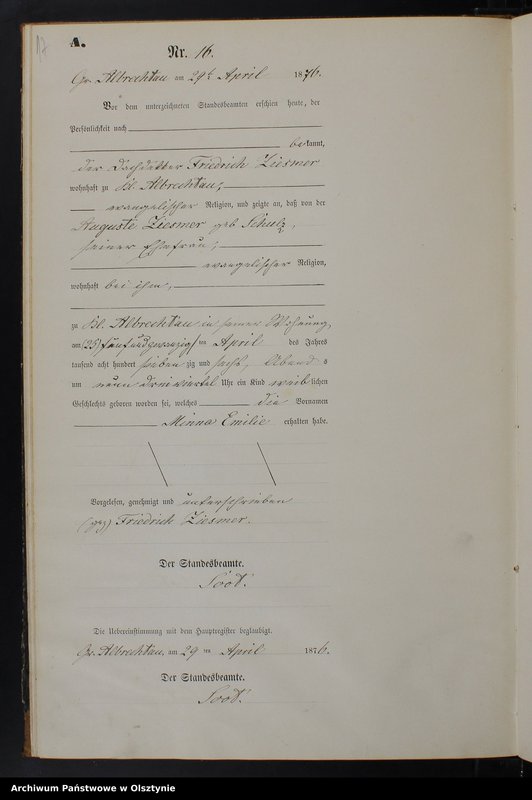 17
A.
Nr. 16.
Gr. Albrechtau am 29t April 1876.
Vor dem unterzeichneten Standesbeamten erschien heute, der
Persönlichkeit nach
bekannt,
der Dachdecker Friedrich Ziesmer
wohnhaft zu Kl. Albrechtau,
evangelischer Religion, und zeigte an, daß von der
Auguste Ziesmer geb Schulz,
seiner Ehefrau,
evangelischer Religion,
wohnhaft bei ihm,
zu Kl. Albrechtau in seiner Wohnung
am (25) fünfundzwanzig ten April des Jahres
tausend acht hundert sieben zig und sechs, Abend s
um neun dreiviertel Uhr ein Kind weib lichen
Geschlechts geboren worden sei, welches die Vornamen
Minna Emilie erhalten habe.
Vorgelesen, genehmigt und unterschrieben
(gez) Friedrich Ziesmer.
Der Standesbeamte.
Die Uebereinstimmung mit dem Hauptregister beglaubigt.
Gr. Albrechtau, am 29 ten April 1876.
Der Standesbeamte.
Archiwum Państwowe w Olsztynie